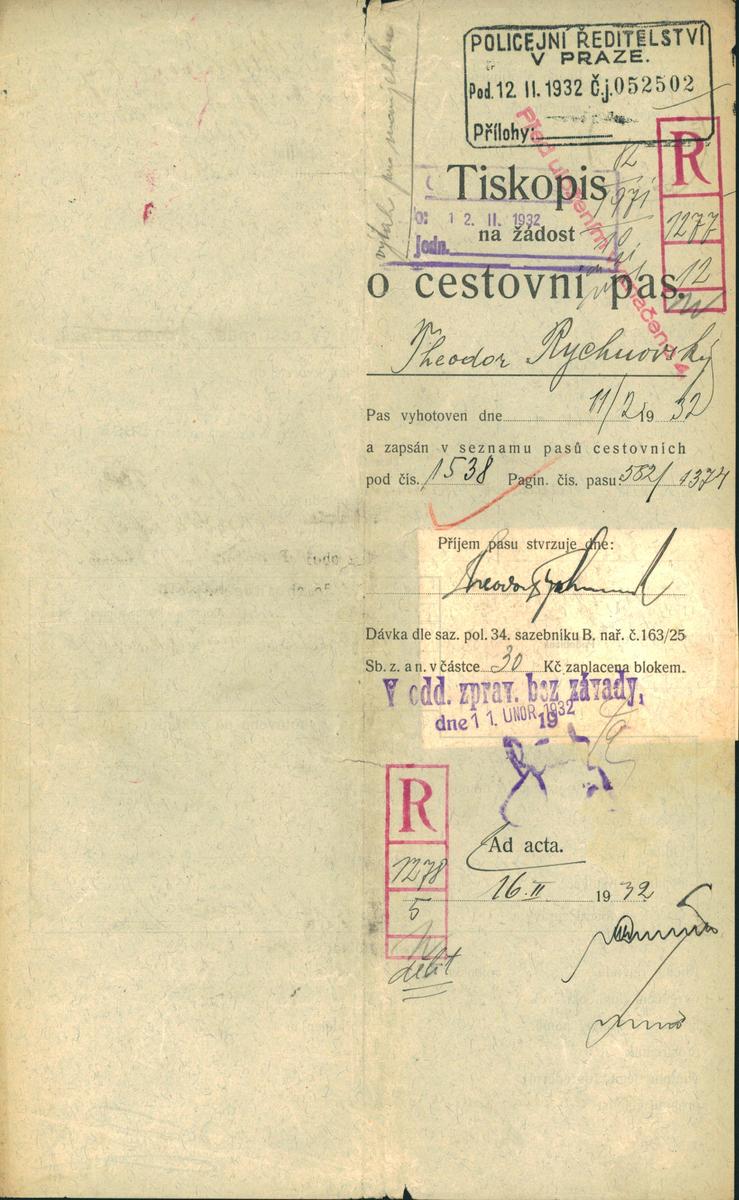 POLICEJNÍ ŘEDITELSTVÍ
V PRAZE.
Pod. 12. II. 1932 Č.j. 052502
Přílohy:
R
1277
12
Tiskopis
12. II. 1932
jedn.
na žádost
o cestovní pas.
Theodor Rychnovský
Pas vyhotoven dne 11/2 19 32
a zapsán v seznamu pasů cestovních
pod čís. 1538 Pagin. čís. pasu: 562/1374
Příjem pasu stvrzuje dne:
Dávka dle saz. pol. 34. sazebníku B. nař. č. 163/25
Sb. z. a n. v částce 30 Kč zaplacena blokem.
V odd. zprav. bez závady,
dne 11. ÚNOR 1932 19
R
1278
5
Ad acta.
16. II 19 32